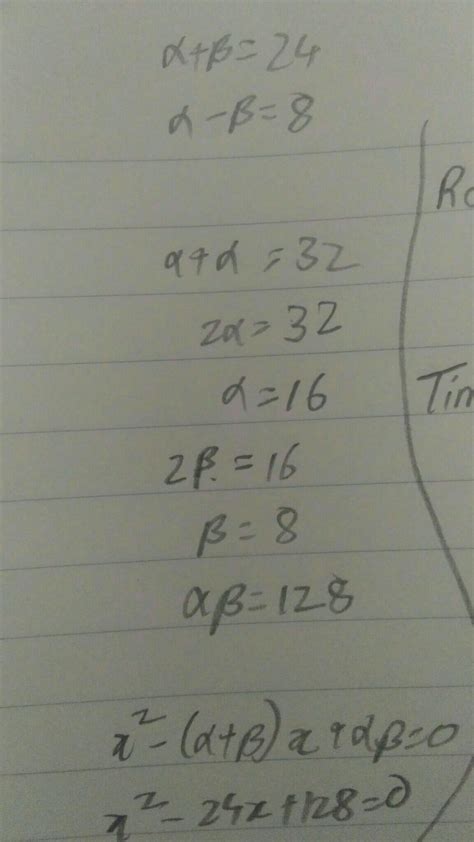 α+β=24
α-β=8
α+α=32
2α=32
α=16
2β.=16
β=8
αβ=128
x²-(α+β)x+αβ=0
x²-24x+128=0